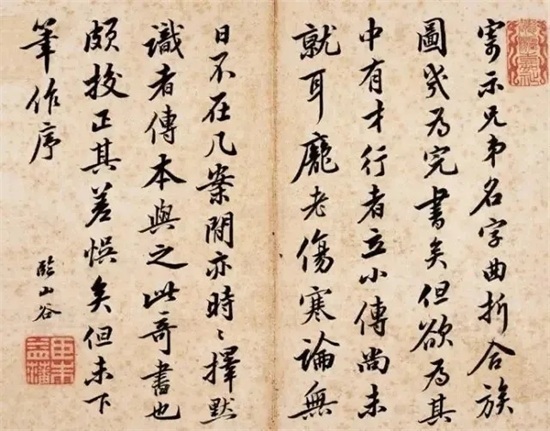 寄示兄弟名字曲折合族
圖幾為完書矣但欲為其
中有才行者立小傳尚未
就耳龐老傷寒論無
日不在几案閒亦時〻擇默
識者傳本與之此奇書也
頗挍正其差悞矣但未下
筆作序
臨山谷